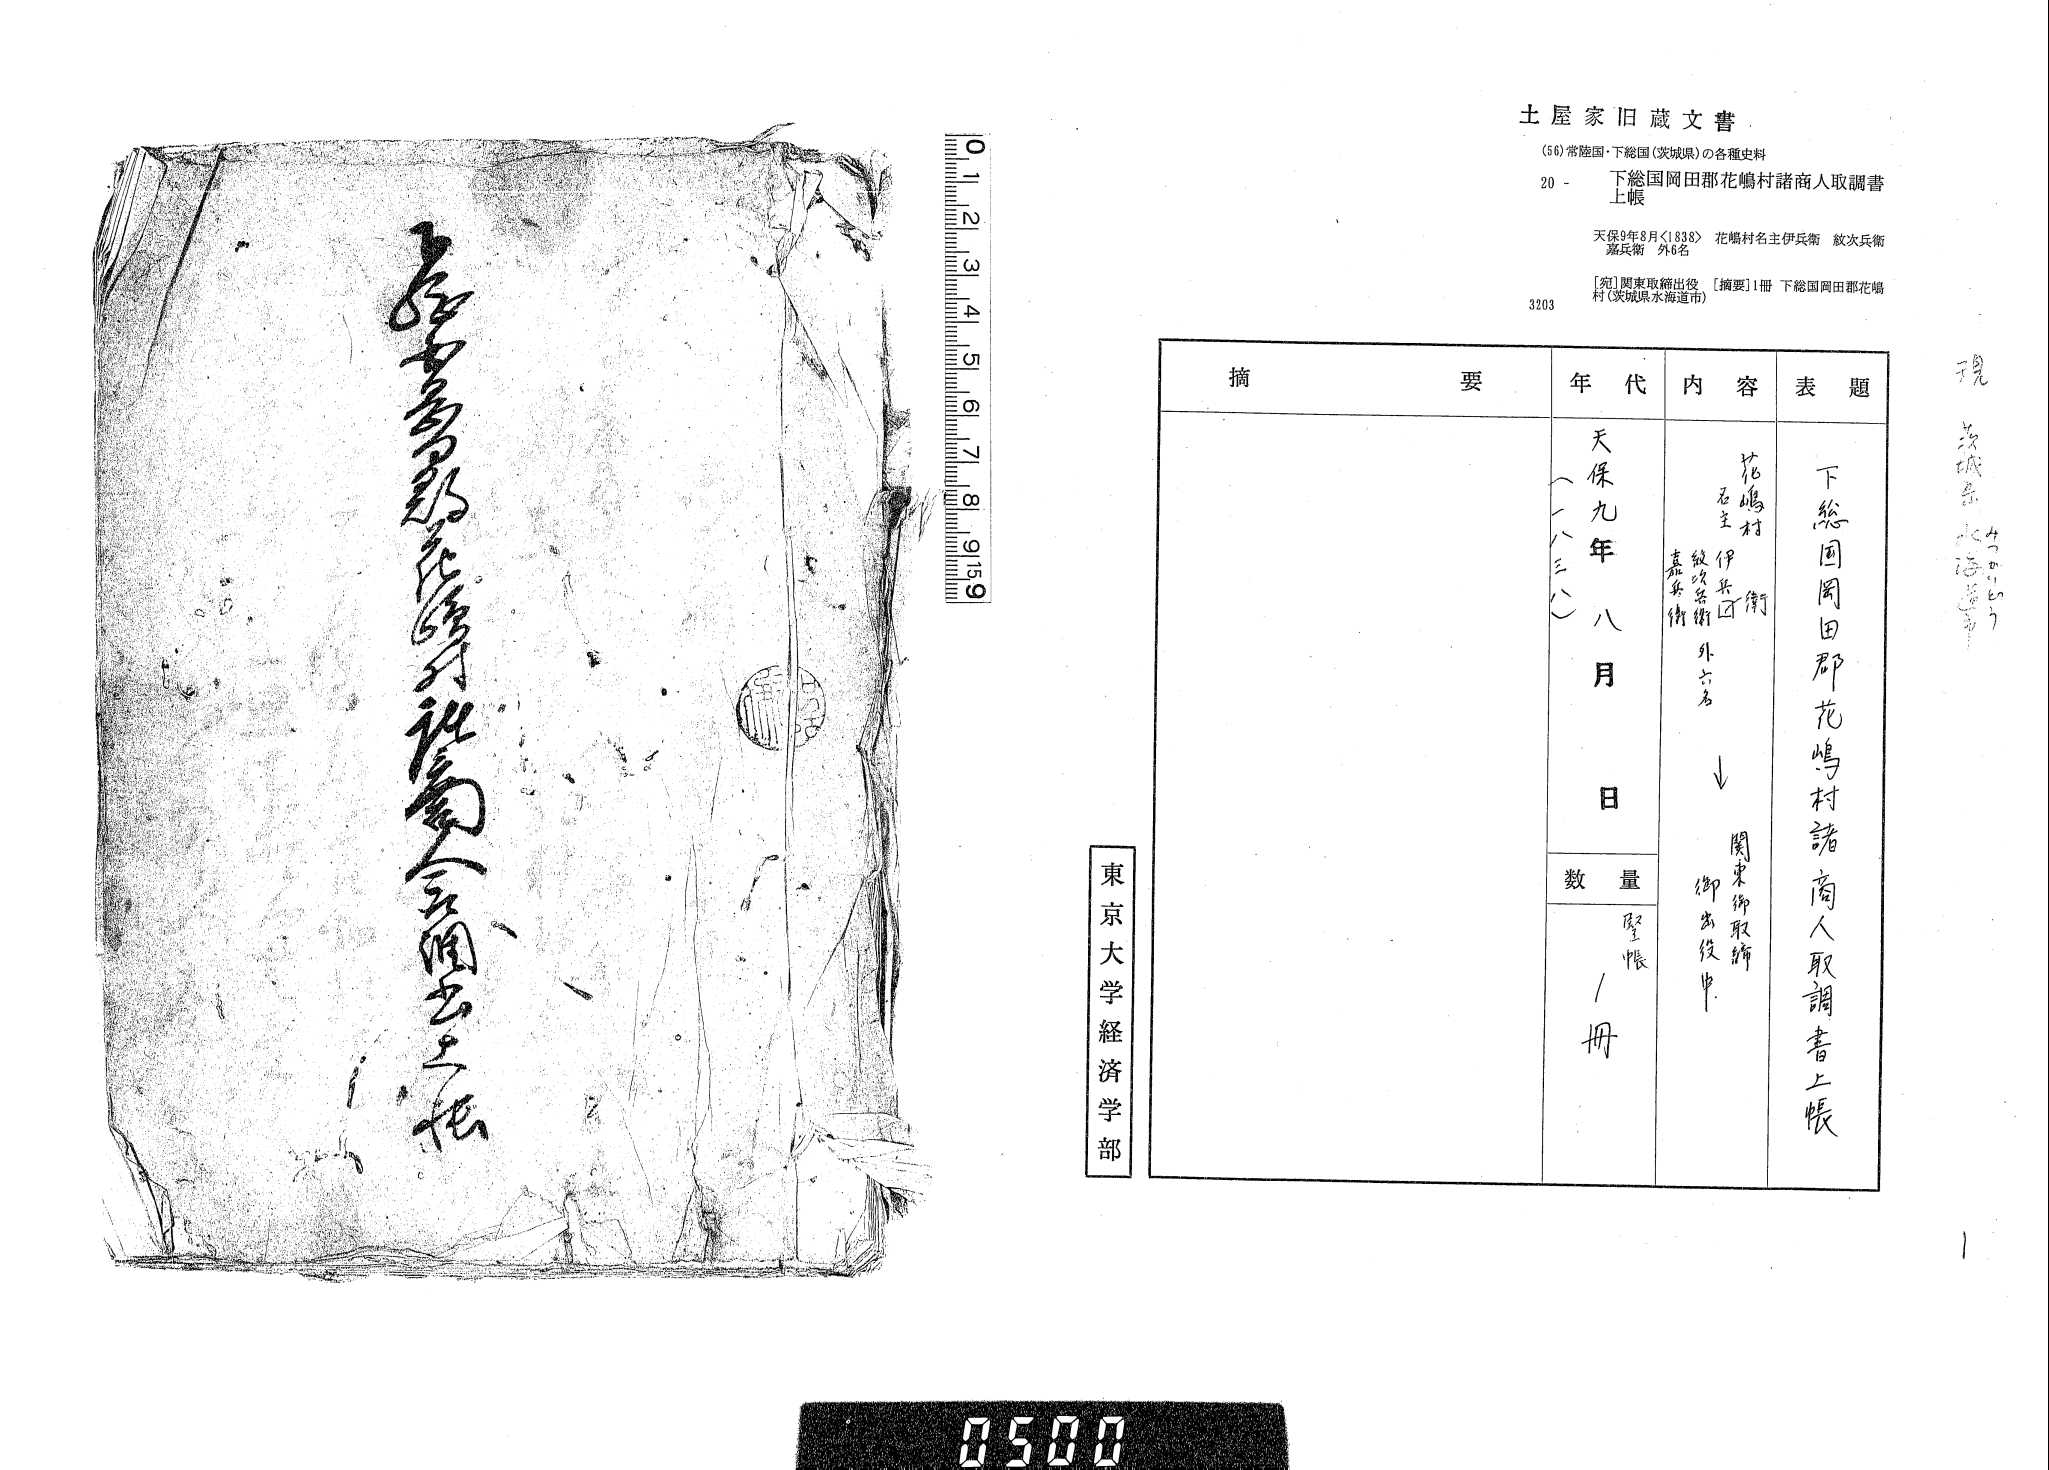 土屋家旧蔵文書
(56)常陸国・下総国(茨城県)の各種史料
20 - 下総国岡田郡花嶋村諸商人取調書
上帳
天保9年8月<1838> 花嶋村名主伊兵衛 紋次兵衛
嘉兵衛 外6名
[宛]関東取締出役 [摘要]1冊 下総国岡田郡花嶋
村(茨城県水海道市)
3203
現 茨城県水海道市
みつかいどう
表題
下総国岡田郡花嶋村諸商人取調書上帳
内容
花嶋村
名主 伊兵衛
紋次兵衛
嘉兵衛
外六名
↓
関東御取締
御出役中
年代
天保九年八月 日
(一八三八)
数量
竪帳
1冊
摘要
東京大学経済学部
1
0 1 2 3 4 5 6 7 8 9 15 9
下総国岡田郡花嶋村諸商人取調書上帳
0500